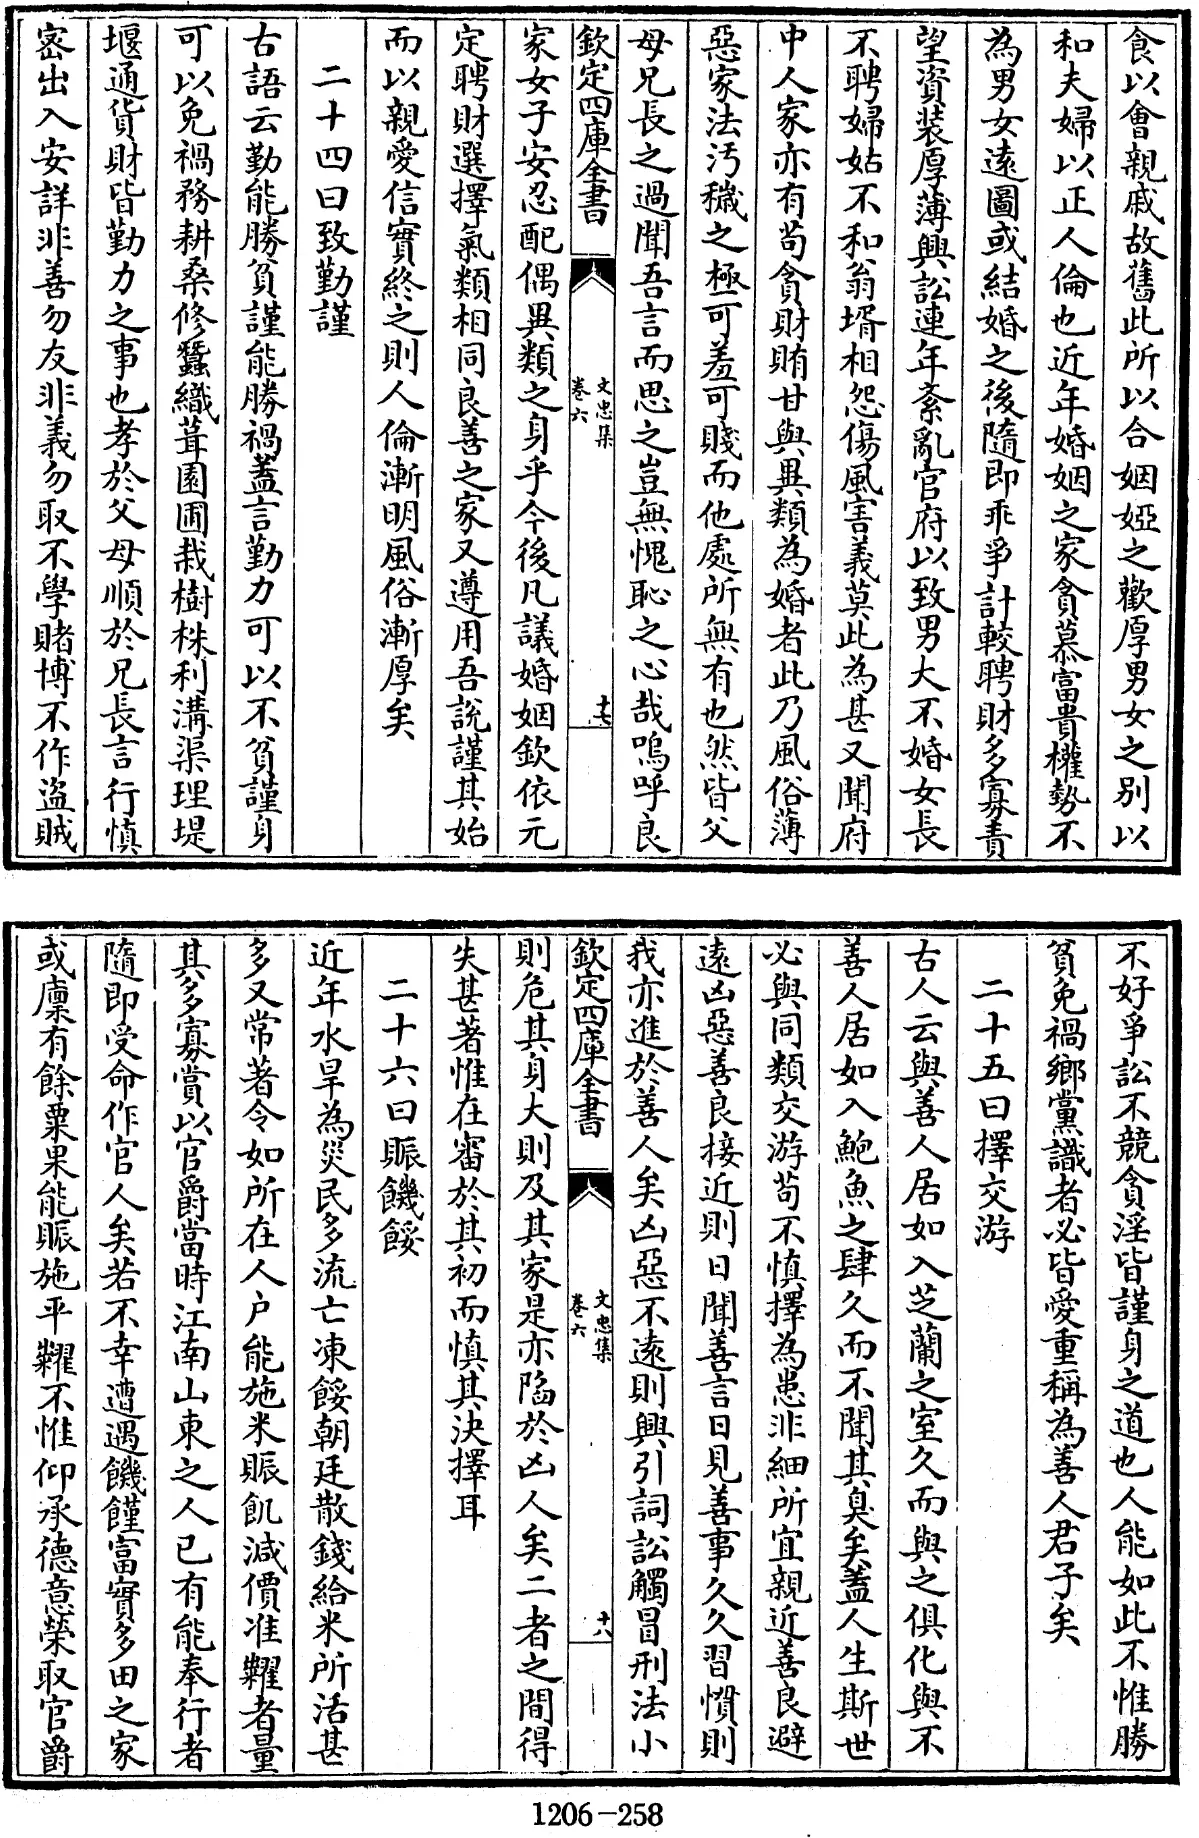 食以會親戚故舊此所以合姻婭之歡厚男女之別以
和夫婦以正人倫也近年婚姻之家貪慕富貴權勢不
為男女遠圖或結婚之後隨即乖爭計較聘財多寡責
望資装厚薄興訟連年紊亂官府以致男大不婚女長
不聘婦姑不和翁壻相怨傷風害義莫此為甚又聞府
中人家亦有苟貪財賄甘與異類為婚者此乃風俗薄
惡家法汚穢之極可羞可賤而他處所無有也然皆父
母兄長之過聞吾言而思之豈無愧恥之心哉嗚呼良
欽定四庫全書
文忠集
卷六
十七
家女子安忍配偶異類之身乎今後凡議婚姻欽依元
定聘財選擇氣類相同良善之家又遵用吾説謹其始
而以親愛信實終之則人倫漸明風俗漸厚矣
二十四曰致勤謹
古語云勤能勝貧謹能勝禍蓋言勤力可以不貧謹身
可以免禍務耕桑修蠶織葺園圃栽樹株利溝渠理堤
堰通貨財皆勤力之事也孝於父母順於兄長言行慎
密出入安詳非善勿友非義勿取不學賭博不作盜賊
不好爭訟不競貪淫皆謹身之道也人能如此不惟勝
貧免禍鄉黨識者必皆愛重稱為善人君子矣
二十五曰擇交游
古人云與善人居如入芝蘭之室久而與之俱化與不
善人居如入鮑魚之肆久而不聞其臭矣蓋人生斯世
必與同類交游苟不慎擇為患非細所宜親近善良避
遠凶惡善良接近則日聞善言日見善事久久習慣則
我亦進於善人矣凶惡不遠則興引詞訟觸冒刑法小
欽定四庫全書
文忠集
卷六
十八
則危其身大則及其家是亦陷於凶人矣二者之間得
失甚著惟在審於其初而慎其決擇耳
二十六曰賑饑餒
近年水旱為災民多流亡凍餒朝廷散錢給米所活甚
多又常著令如所在人户能施米賑飢減價准糶者量
其多寡賞以官爵當時江南山東之人已有能奉行者
隨即受命作官人矣若不幸遭遇饑饉富實多田之家
或廪有餘粟果能賑施平糶不惟仰承德意榮取官爵
1206-258